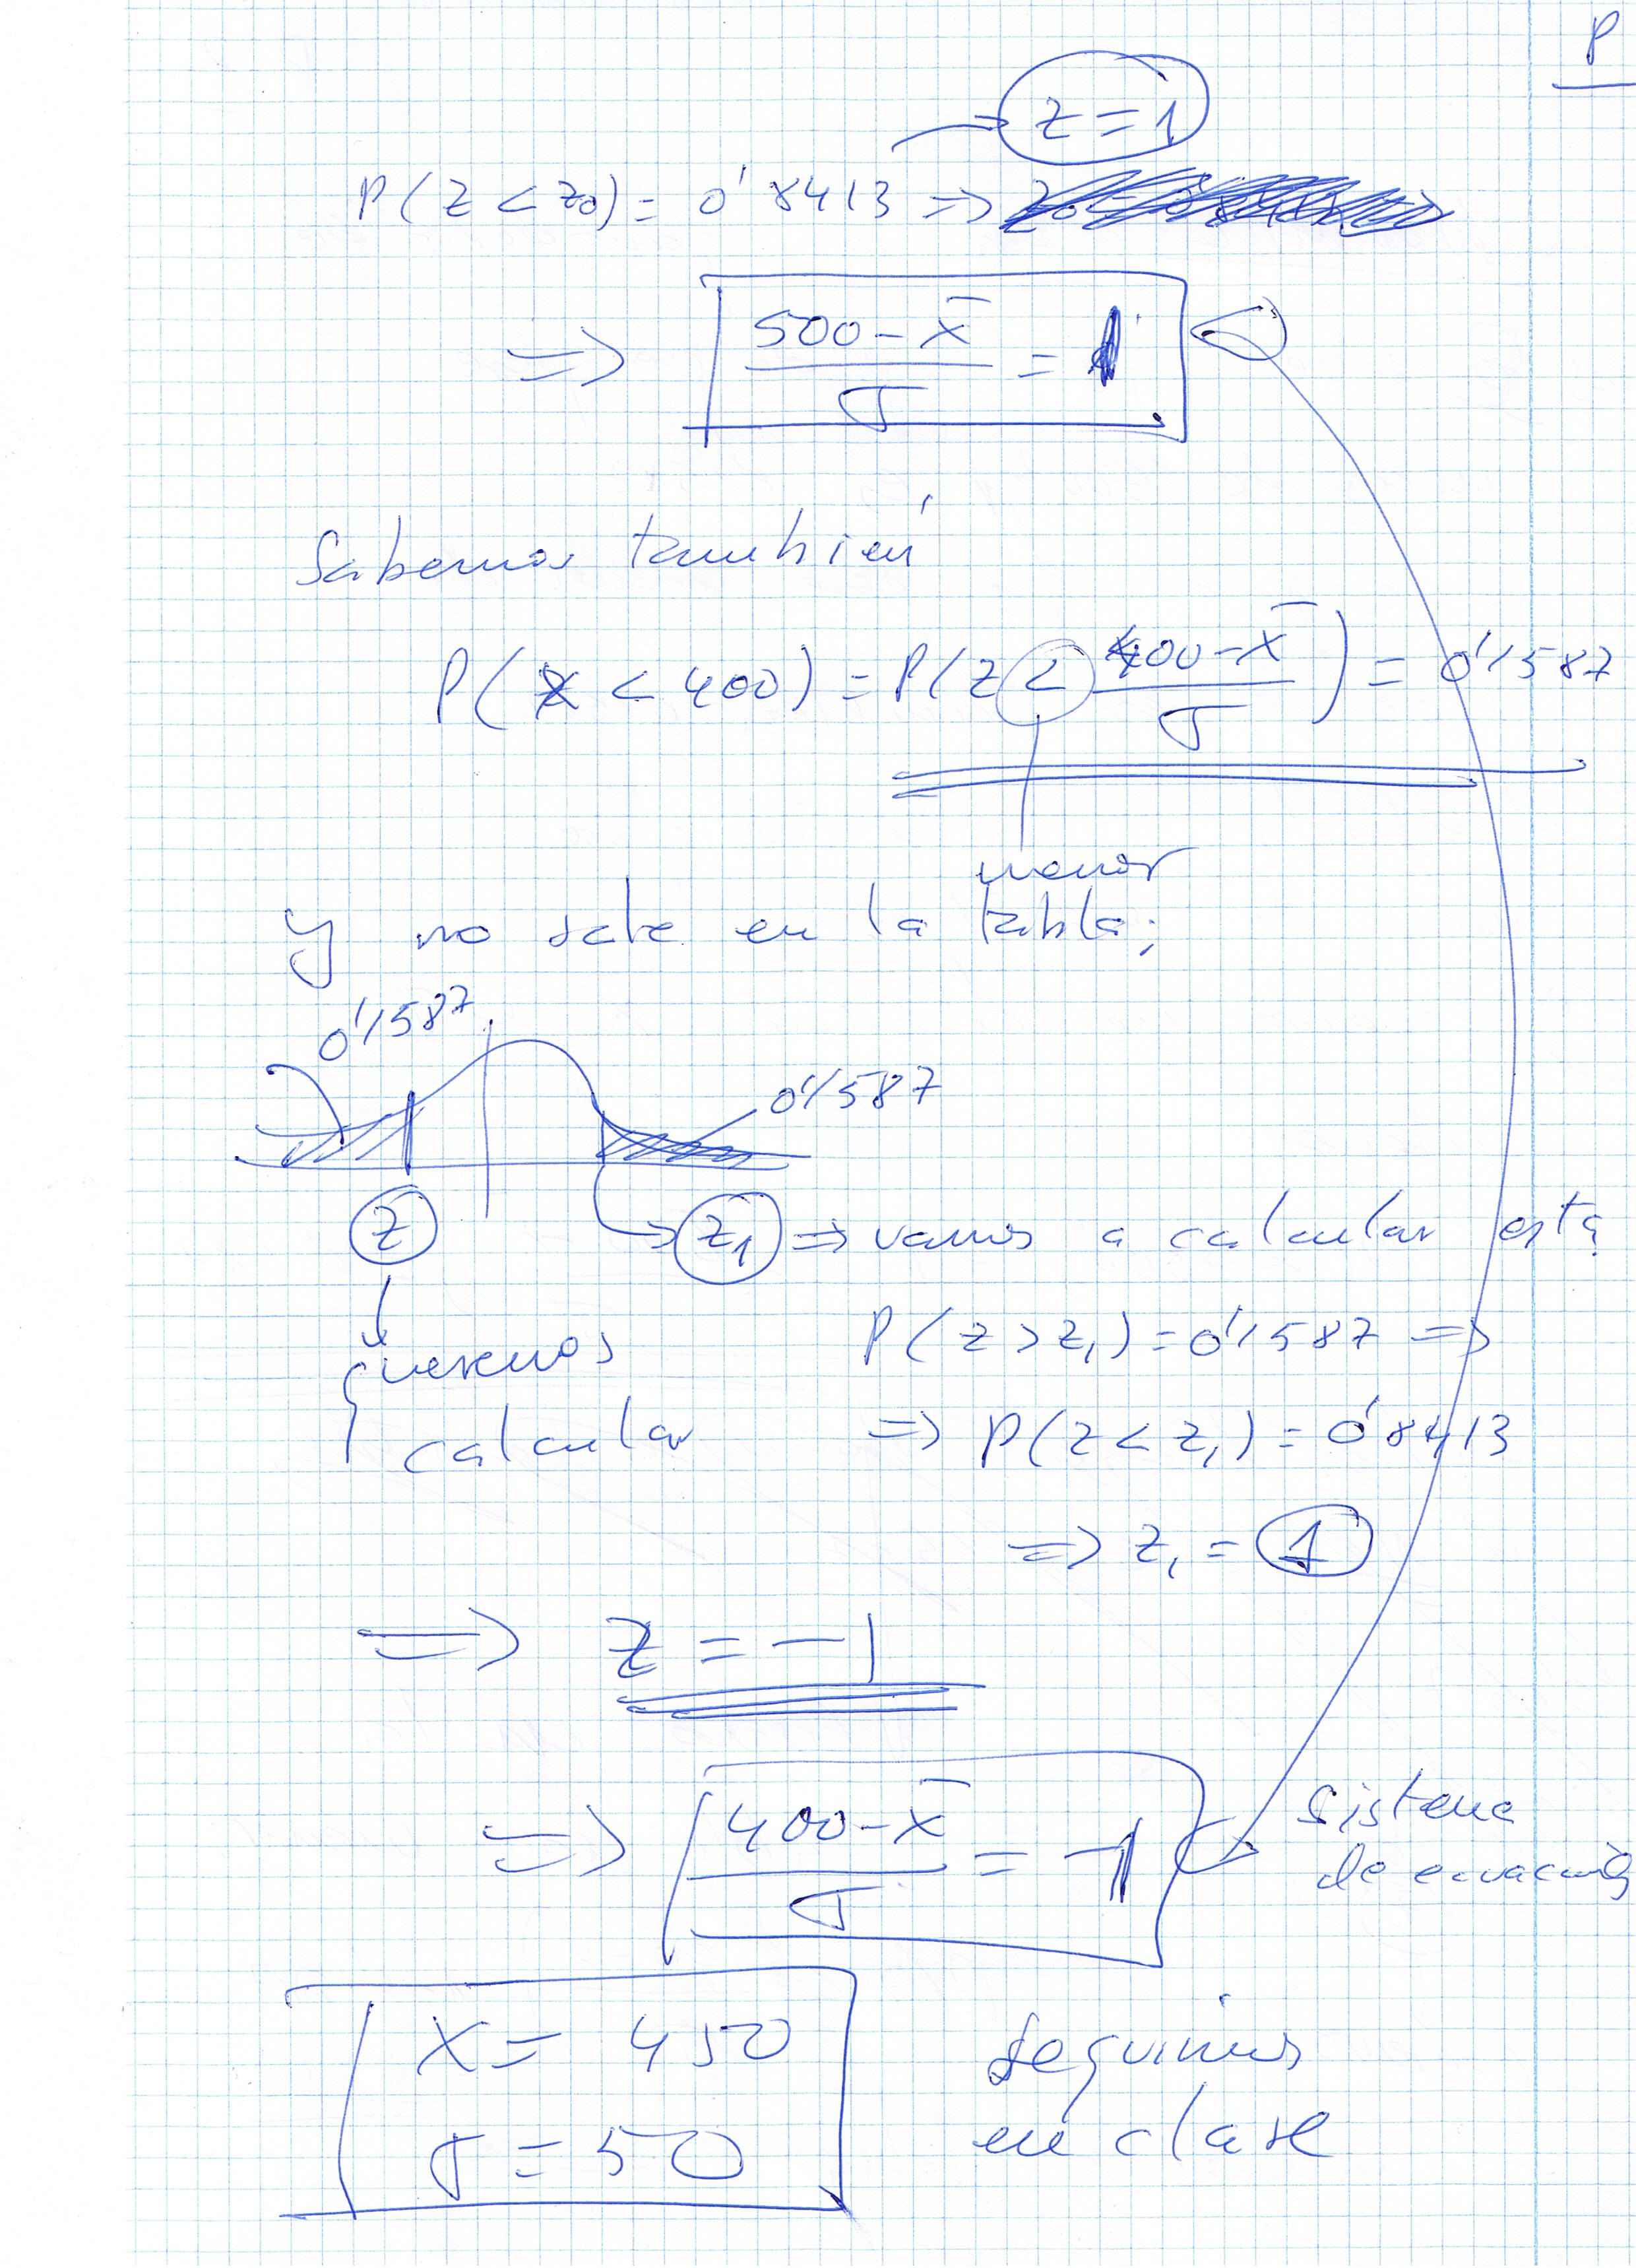 P
z = 1
P(Z < z0) = 0'8413 =>
=> (500 - x̄)/σ = 1
Sabemos también
P(x < 400) = P(z < (400 - x̄)/σ) = 0'1587
menor
y no sale en la tabla;
0'1587
0'1587
z
z1 => vamos a calcular esta
queremos
calcular
P(z > z1) = 0'1587 =>
=> P(z < z1) = 0'8413
=> z1 = 1
=> z = -1
=> (400 - x̄)/σ = -1
sistema
de ecuaciones
x = 450
σ = 50
seguimos
en clase